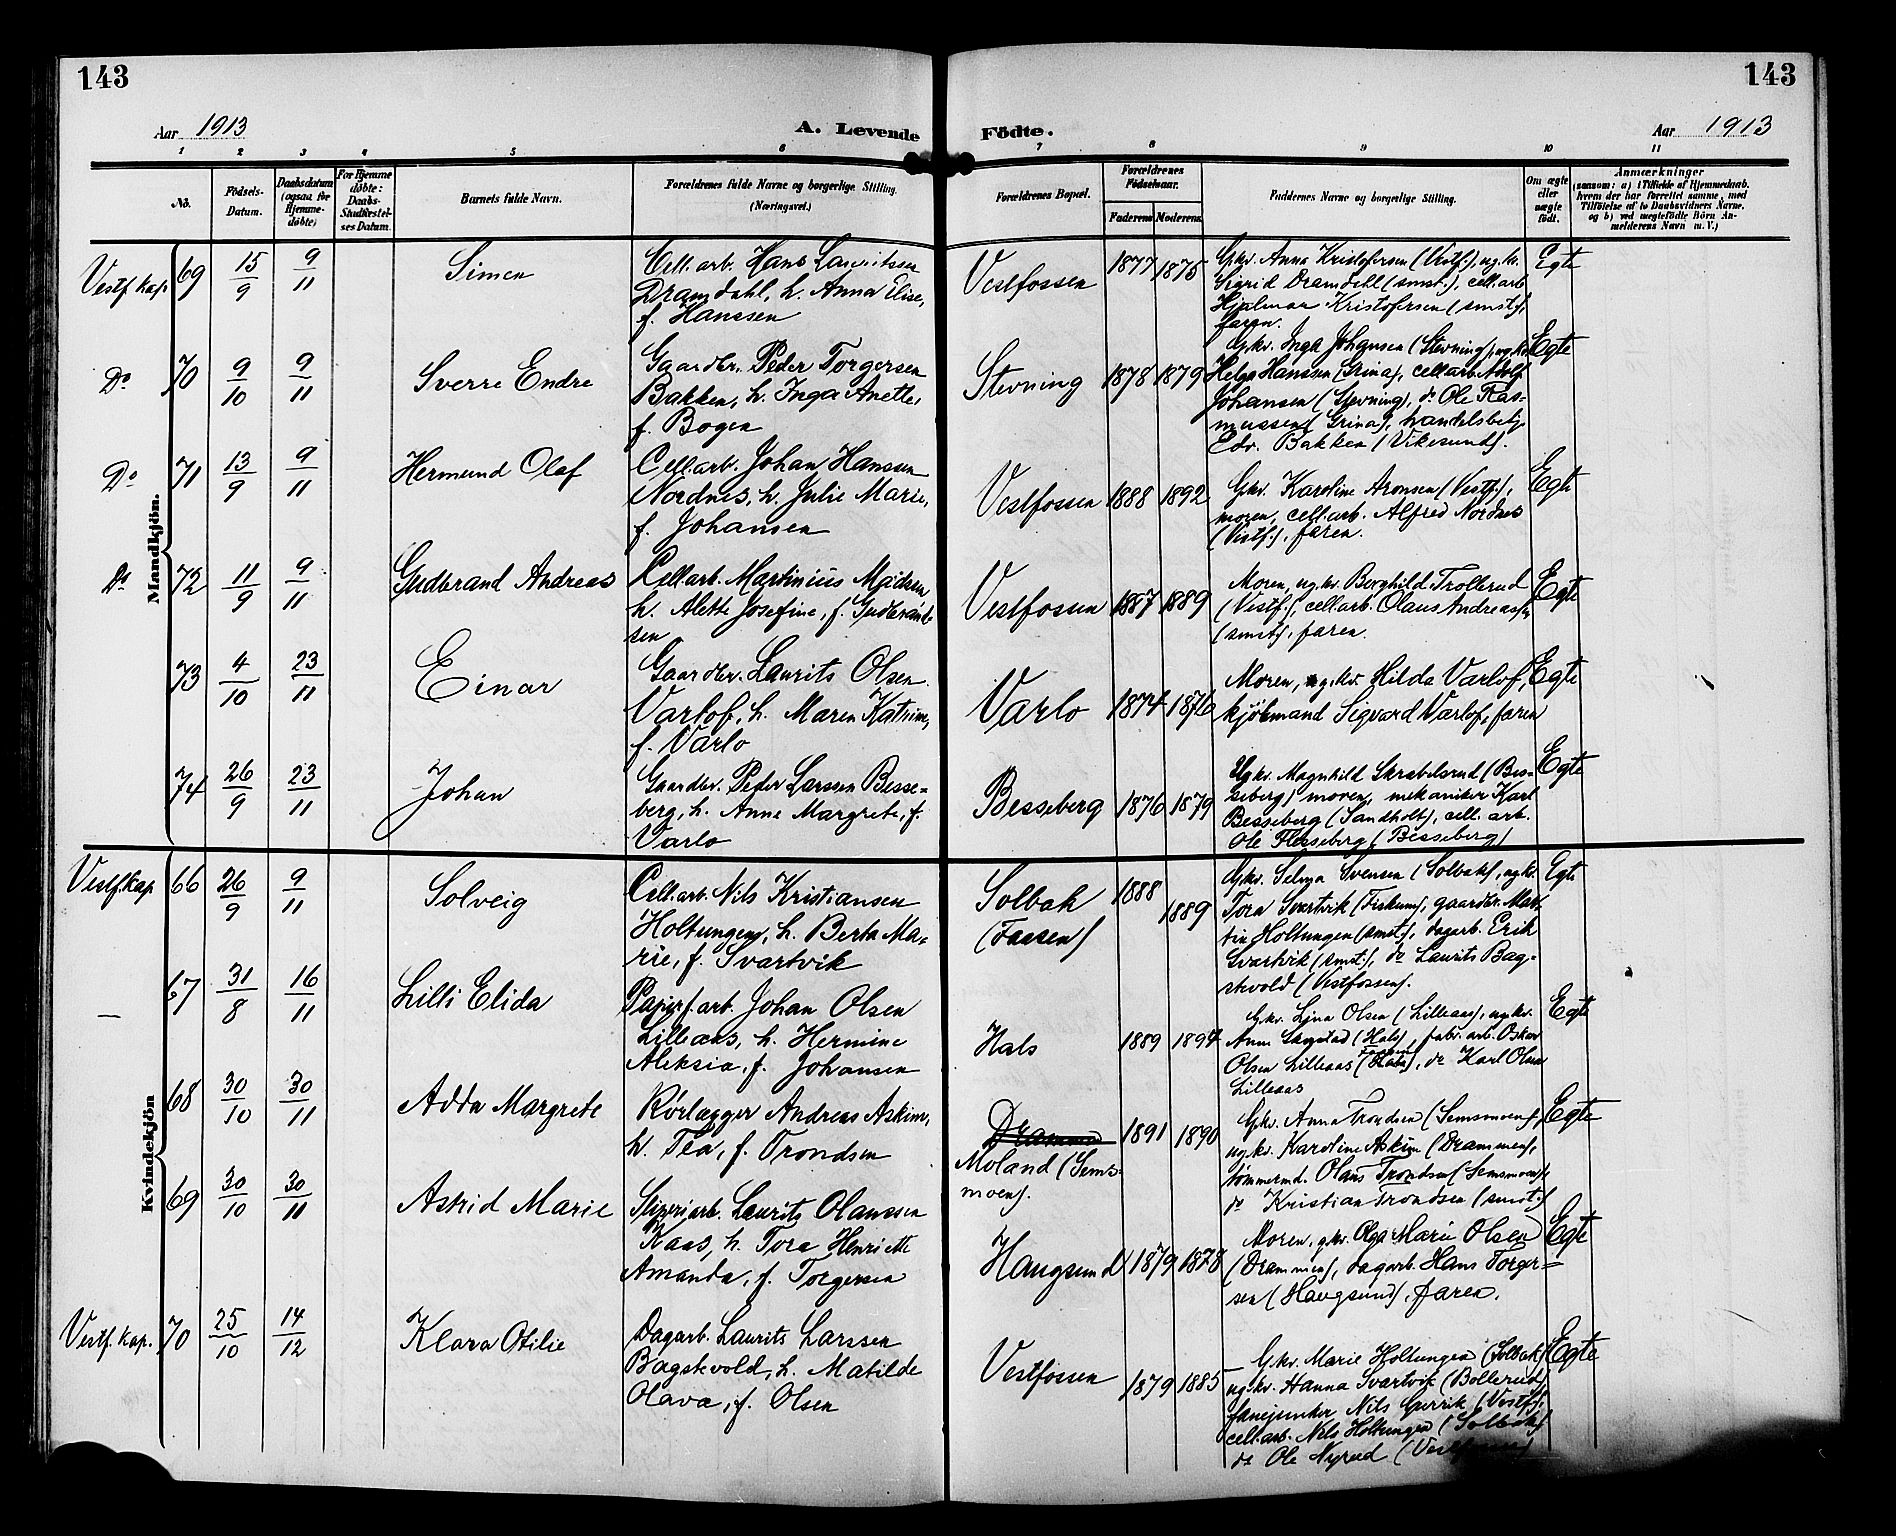 143
143
Aar 1913
A. Levende
Födte.
Aar 1913
1 2 3 4 5 6 7 8 9 10 11
No.
Födsels-
Datum.
Daabsdatum
(ogsaa for
Hjemme-
döbte)
For Hjemme
döbte:
Daabs-
Stadfæstel-
ses Datum.
Barnets fulde Navn.
Forældrenes fulde Navne og borgerlige Stilling.
(Næringsvei.)
Forældrenes Bopæl.
Forældrenes
Födselsaar.
Faderens
Moderens
Faddernes Navne og borgerlige Stilling.
Om ægte
eller
uægte
födt.
Anmærkninger
(saasom: a) i Tilfælde af Hjemmedaab,
hvem der har forrettet samme, med
Tilföielse af to Daabsvidners Navne,
og b) ved uægtefödte Börn An-
melderens Navn m. V.)
Mandkjön.
Vestf. kap. 69 15/9 9/11 Simen
Cell.arb. Hans Lauritssen
Dramdahl, h. Anna Elise,
f. Hanssen
Vestfossen 1877 1875
Gkv. Anna Kristofersen (Vestf.), ug.kv.
Sigrid Dramdahl (smst.), cell.arb
Hjalmar Kristofersen (smst),
faren.
Egte
Do 70 9/10 9/11 Sverre Endre
Gaardbr. Peder Torgersen
Bakken, h. Inga Anette,
f. Bogen
Stevning 1878 1879
Gkv. Inga Johansen (Stevning), ug.kv.
Helga Hanssen (Grina), cell.arb. Adolf
Johansen (Stevning), do Ole Ras-
mussen (Grina), handelsbetj.
Edv. Bakken (Vikesund).
Egte
Do 71 13/9 9/11 Hermund Olaf
Cell.arb. Johan Hanssen
Nordnes, h. Julie Marie,
f. Johansen
Vestfossen 1888 1892
Gkv. Karoline Aronsen (Vestf.),
moren, cell.arb. Alfred Nordnes
(Vestf.), faren.
Egte
Do 72 11/9 9/11 Gudbrand Andreas
Cell.arb. Martinius
h. Alette Josefine, f. Gudbrand-
sen
Vestfossen 1887 1889
Moren, ug.kv. Borghild Trollerud
(Vestf.), cell.arb. Olaus Andreassen
(smst), faren.
Egte
73 4/10 23/11 Einar
Gaardbr. Laurits Olsen
Varlof, h. Maren Katrine,
f. Varlo
Varlo 1874 1876
Moren, ug.kv. Hilda Varlof,
kjøbmand Sigvard Varlof, faren
Egte
74 26/9 23/11 Johan
Gaardbr. Peder Larssen Besse-
berg, h. Anne Margrete, f.
Varlo
Besseberg 1876 1879
Ugkv. Magnhild Skrabelsrud (Bes-
seberg) moren, mekaniker Karl
Besseberg (Sandholt), cell. arb.
Ole Flesseberg (Besseberg)
Egte
Kvindekjön
Vestf.kap. 66 26/9 9/11 Solveig
Cell.arb. Nils Kristiansen
Holtungen, h. Berta Ma-
rie, f. Svartvik
Solbak
(Faasen)
1888 1889
Gkv. Selma Svensen (Solbak), ug.kv.
Tora Svartvik (Fiskum), gaardbr. Mar-
tin Holtungen (smst), dagarb. Erik
Svartvik (smst.), do Laurits Bag-
stevold (Vestfossen).
Egte
— 67 31/8 16/11 Lilli Elida
Papirf.arb. Johan Olsen
Lilleaas, h. Hermine
Aleksia, f. Johansen
Hals 1889 1894
Gkv. Lina Olsen (Lilleaas), ug.kv.
Anna (Hals), fabr. arb. Oskar
Olsen Lilleaas, do Karl Olsen
Lilleaas
Egte
68 30/10 30/11 Adda Margrete
Rørlægger Andreas Askim,
h. Tea, f. Trondsen
Drammen
Moland (Sems-
moen).
1891 1890
Gkv. Anna Trondsen (Semsmoen),
ug.kv. Karoline Askim (Drammen),
tømmermd. Olaus Trondsen (Semsmoen),
do Kristian Trondsen (smst.)
Egte
69 30/10 30/11 Astrid Marie
Sliperiarb. Laurits Olaussen
Kaas, h. Tora Henriette
Amanda, f. Torgersen
Haugsund 1879 1878
Moren, gkv. Olga Marie Olsen
(Drammen), dagarb. Hans Torger-
sen (Haugsund), faren.
Egte
Vestf. kap. 70 25/10 14/12 Klara Otilie
Dagarb. Laurits Larssen
Bagstevold, h. Matilde
Olava, f. Olsen
Vestfossen 1879 1885
Gkv. Marie Holtungen (Solbak)
ug.kv. Hanna Svartvik (Bollerud)
fanejunker Nils (Vestf.),
cell.arb. Nils Holtungen (Solbak)
do Ole Nyrud (Vestfossen)
Egte